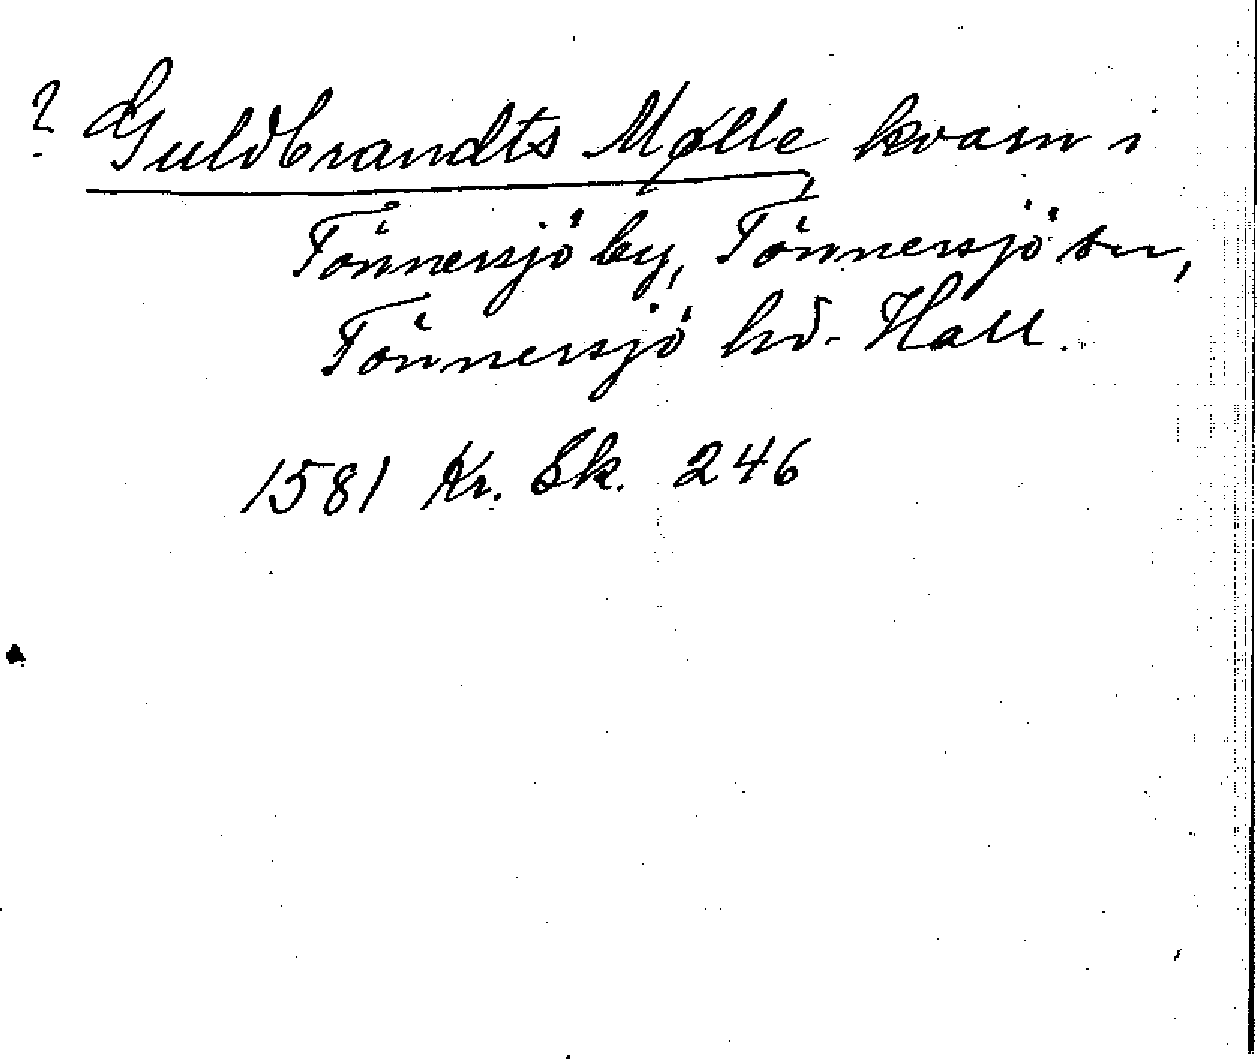 ? Guldbrandts Mølle kvarn i
Tönnersjö by, Tönnersjö sn,
Tönnersjö hd. Hall.
1581 Kr. Sk. 246